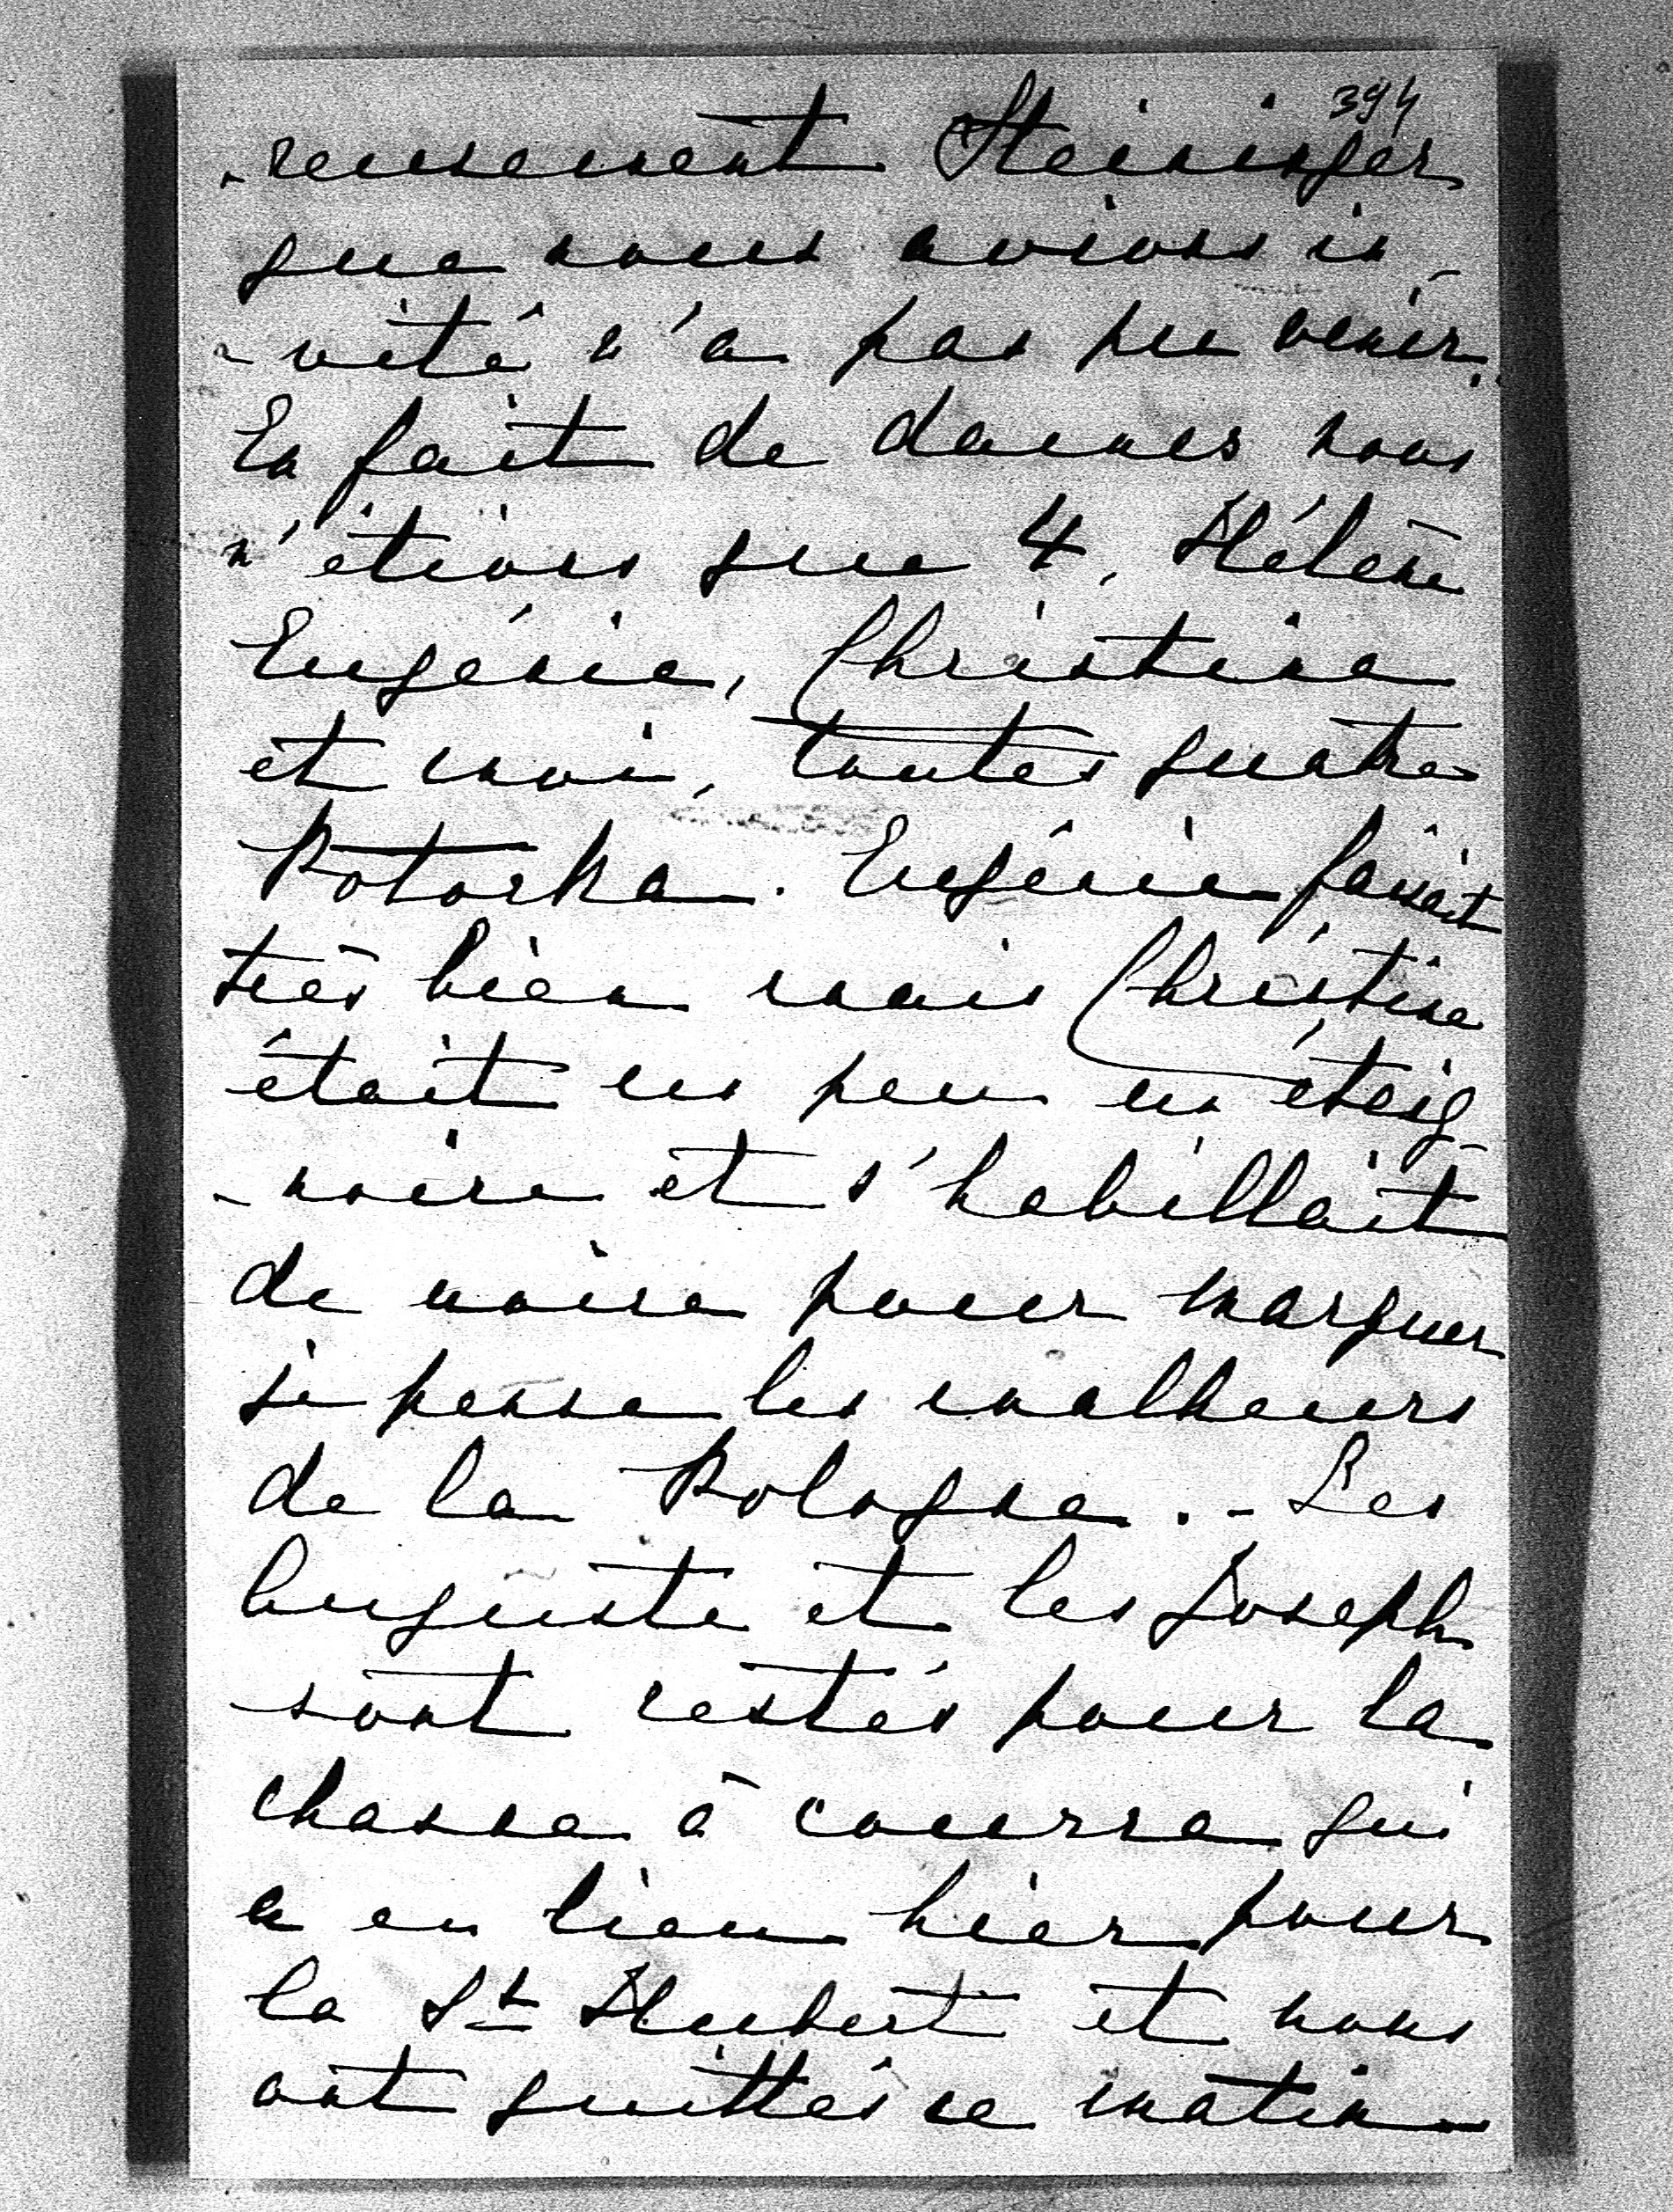 394
-reusement Steininger
que nous avions in-
-vité n'a pas pu venir.
En fait de dames nous
n'étions que 4, Hélène
Eugénie, Christine
et moi, toutes quatre
Potocka. Eugénie faisait
très bien mais Christine
était un peu un éteig-
-noire et s'habillait
de noire pour marquer
je pense les malheurs
de la Pologne. - Les
Auguste et les Joseph
sont restés pour la
chasse à courre qui
a eu lieu hier pour
la St Hubert et nous
ont quittés ce matin